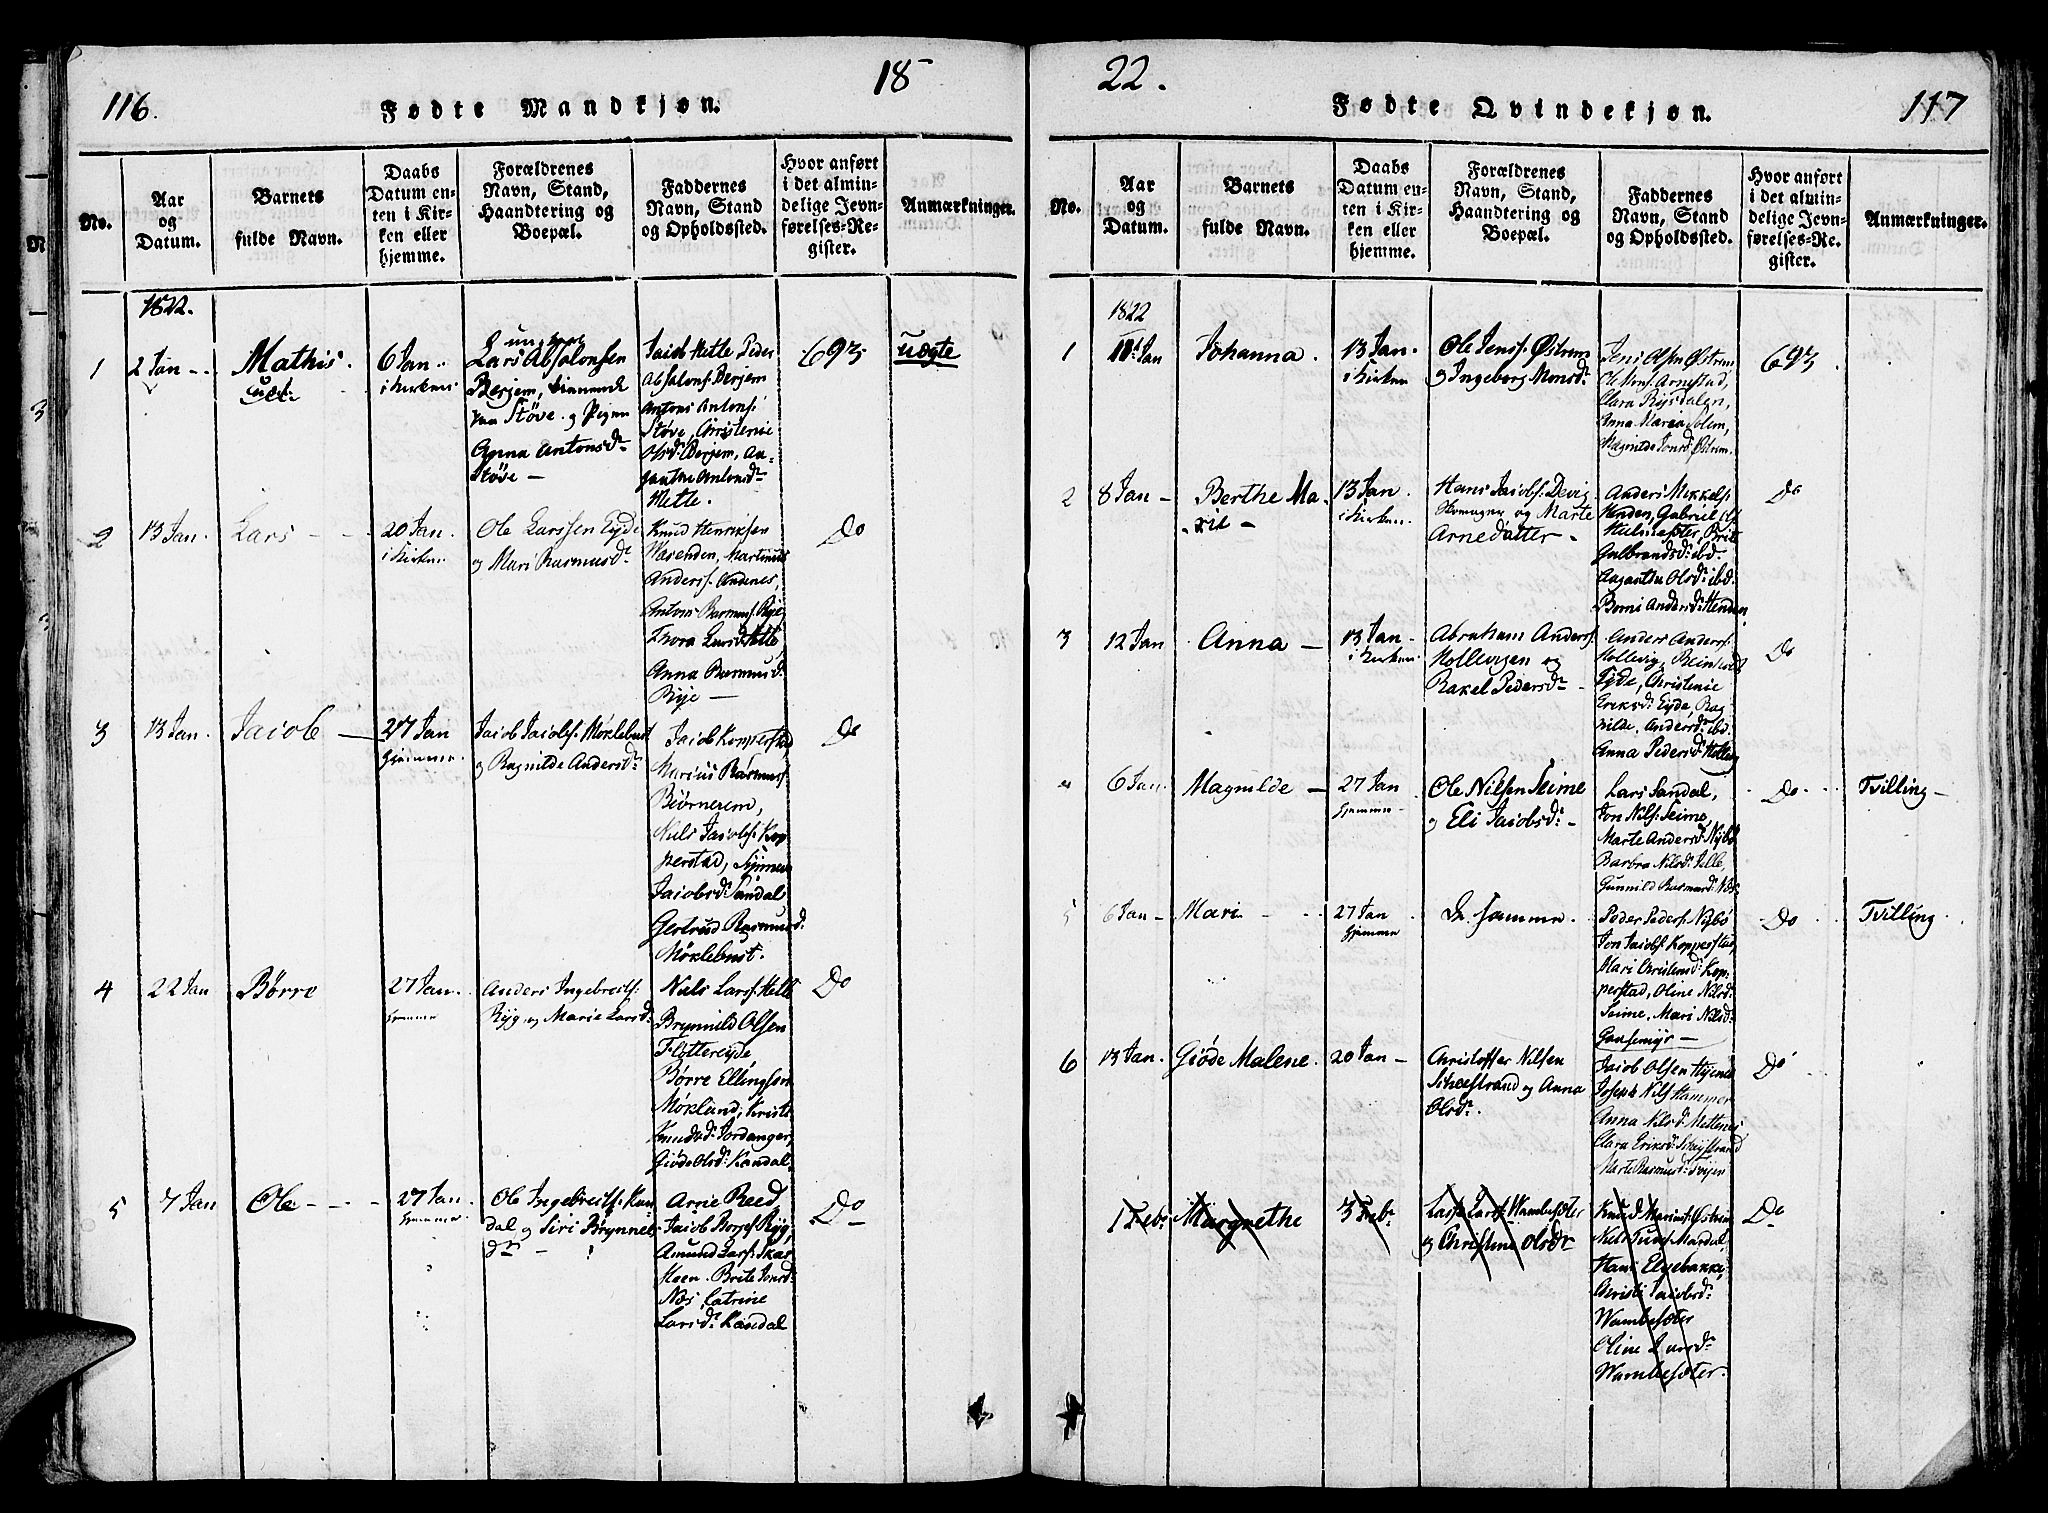 116.
18
Fødte Mandkjøn.
No.
Aar
og
Datum.
Barnets
fulde Navn.
Daabs
Datum en-
ten i Kir-
ken eller
hjemme.
Forældrenes
Navn, Stand,
Haandtering og
Boepæl.
Faddernes
Navn, Stand
og Opholdssted.
Hvor anført
i det almin-
delige Jevn-
førelses-Re-
gister.
Anmærkninger.
1822.
1
2 Jan
Mathis.
6 Jan
i Kirken
Lars Absalonsen
Berjem,
Støve og Pigen
Anna Antonsdr
Støve
Jacob Hetle Peder
Absalons. Berjem
Antons Antons.
Støve, Christenie
Olsd. Berjem,
Antonsdr
Hetle.
693
uægte
2
13 Jan.
Lars
20 Jan.
i Kirken
Ole Larssen Eyde
og Mari Rasmusdr
Knud Henriksen
Martinus
Anders. Andenes,
Antons Rasmus. Rye
Thora Larsd. Hetle
Anna Rasmusd.
Rye
Do
3
13 Jan.
Jacob
27 Jan
Hjemme
Jacob Jacobs. Møklebust
og Ragnilde Andersdr
Jacob Kopperstad,
Marius Rasmus.
Biørnerem,
Nils Jacobs. Kop-
perstad,
Jacobsd. Sandal
Gertrud Rasmusd.
Møklebust.
Do
4
22 Jan
Børre
27 Jan.
Hjemme
Anders Ingebreits.
Ryg, og Marie Larsd.
Nils Lars. Hetle
Brynnild Olsen
Flottereyde,
Børre Ellingsen
Møklund, Kristi
Knudsd. Jordanger,
Giøde Olsd. Kandal.
Do
5
7 Jan
Ole
27 Jan.
Hjemme
Ole Ingebreits. Kan-
dal og Siri Brynnels
dr
Arne Reed
Jacob Ryg,
Amund Lars. Skar-
Moen. Brite Jonsd.
Næs, Catrine
Larsdr Kandal
Do
22.
117
Fødte Qvindekjøn.
No.
Aar
og
Datum.
Barnets
fulde Navn.
Daabs
Datum en-
ten i Kir-
ken eller
hjemme.
Forældrenes
Navn, Stand,
Haandtering og
Boepæl.
Faddernes
Navn, Stand
og Opholdssted.
Hvor anført
i det almin-
delige Jevn-
førelses-Re-
gister.
Anmærkninger.
1822
1
Jan
Johanna.
13 Jan.
i Kirken
Ole Jens. Østrem
og Ingeborg Monsdr
Jens Olsen Østrem
Ole Mons. Arnestad,
Clara Rysdalen,
Anna Maria Solem,
Magnilde Jonsd. Østrem.
693
2
8 Jan
Berthe Ma-
rit
13 Jan.
i Kirken.
Hans Jacobs. Devig
og Marte
Arnedatter
Anders Mikkels.
Henden, Gabriel
Hulmesæter, Brit
Gulbrandsd. ibd.
Aaganthe Olsd. ibd.
Borni Andersd. Henden
Do
3
12 Jan
Anna
13 Jan
i Kirken
Abraham Anders.
Hollevigen og
Rakel Pedersdr
Anders Anders.
Hollevig,
Eyde, Christenie
Eriksd. Eyde, Rag-
nilde Andersd. ibd
Anna Pedersd.
Do
4
6 Jan.
Magnilde
27 Jan
Hjemme
Ole Nilsen Seime
og Eli Jacobsdr
Lars Sandal,
Jon Nils. Seime
Marte Andersd. Nybø
Barbra Nilsd.
Gunnild Rasmusd.
Do
Tvilling
5
6 Jan
Mari
27 Jan
Hjemme
De samme.
Peder Peders. Nybø
Jon Jacobs. Kopperstad,
Mari Christensd. Kop-
perstad, Oline Nilsd.
Seime, Mari Nilsd.
Gaasemyr
Do
Tvilling
6
13 Jan.
Giøde Malene.
20 Jan
Christoffer Nilsen
og Anna
Olsdr.
Jacob Olsen Hjene
Joseph Nils Hammer
Anna Nilsd.
Clara Eriksd.
Marte Rasmusd.
Do
1 Febr
Margrethe
3 Febr
Lars Lars. Wambesæter
og Christine Olsdr
Knud Marius. Østrem
Nils Mardal,
Hans Elvebakke,
Christi Jacobsd.
Wambesæter
Oline Larsdr
Wambesæter.
Do